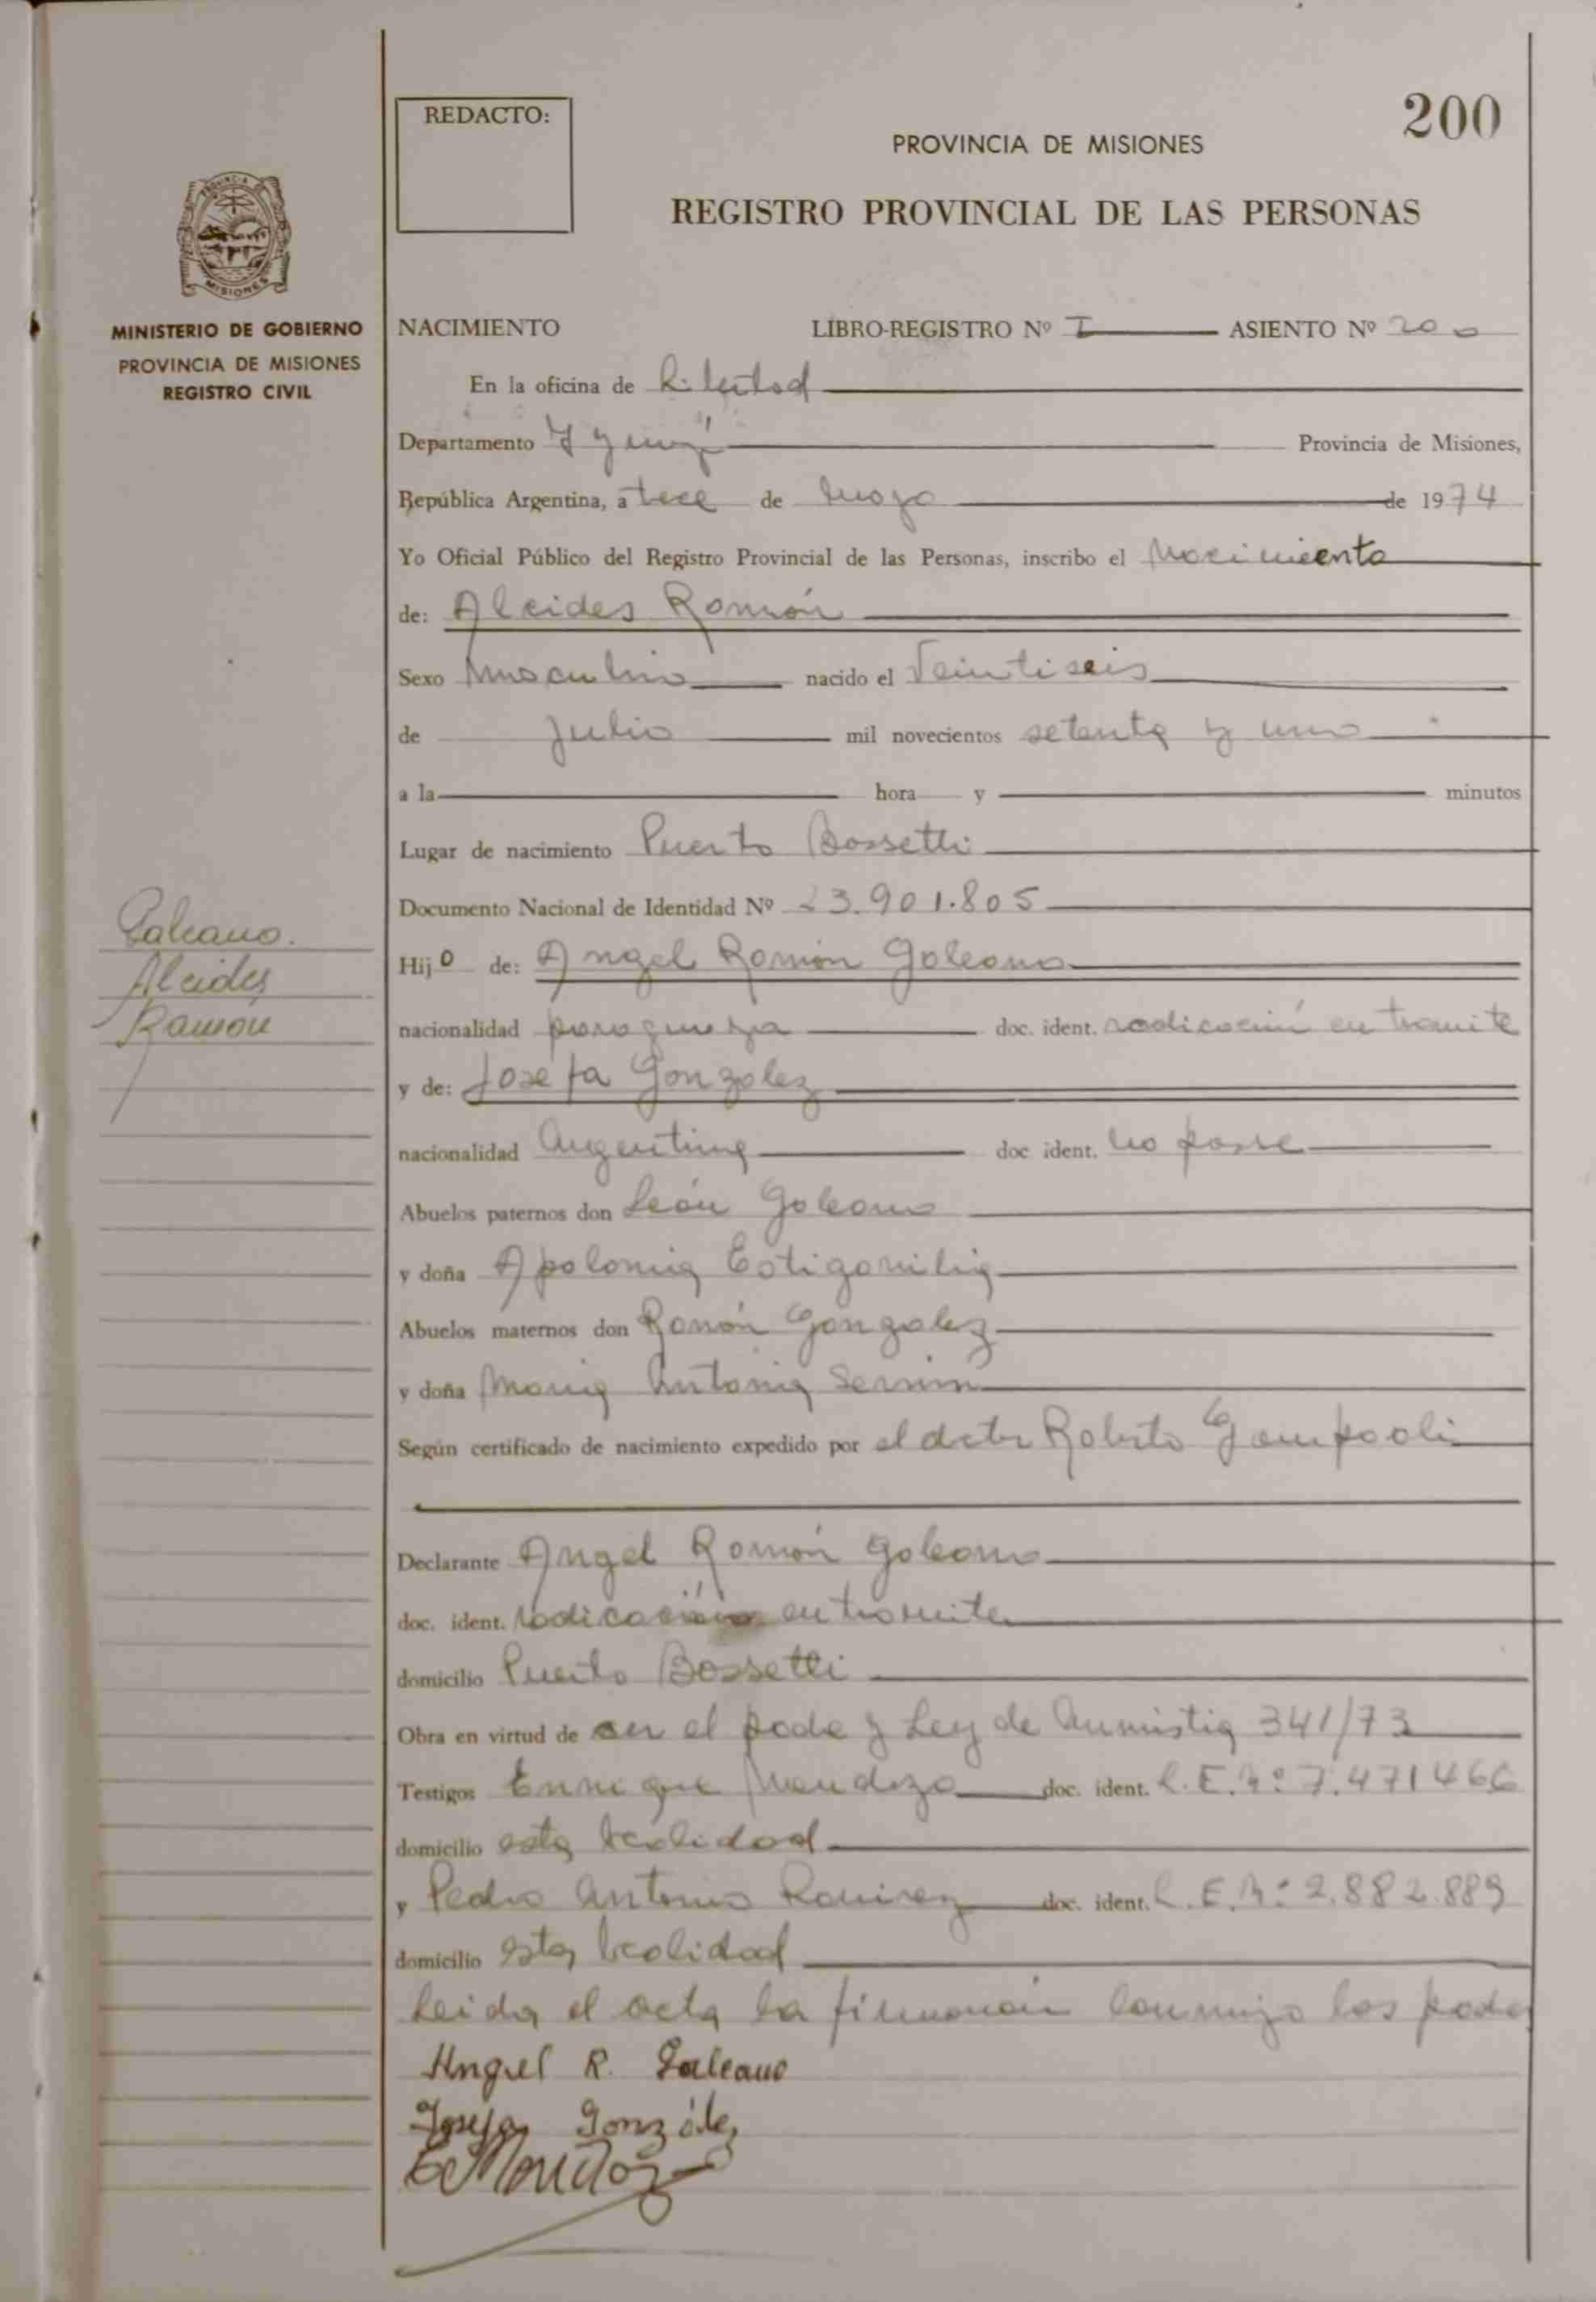 REDACTO:
200
PROVINCIA DE MISIONES
REGISTRO PROVINCIAL DE LAS PERSONAS
PROVINCIA DE
MISIONES
MINISTERIO DE GOBIERNO
PROVINCIA DE MISIONES
REGISTRO CIVIL
NACIMIENTO LIBRO-REGISTRO Nº I ASIENTO Nº 200
En la oficina de Libertad
Departamento Iguazú Provincia de Misiones,
República Argentina, a trece de marzo de 1974
Yo Oficial Público del Registro Provincial de las Personas, inscribo el Nacimiento
de: Alcides Ramón
Sexo Masculino nacido el Veintiseis
de Julio mil novecientos setenta y uno
a la hora y minutos
Lugar de nacimiento Puerto Bossetti
Documento Nacional de Identidad Nº 23.901.805
Galeano.
Alcides
Ramón
Hijo de: Angel Ramón Galeano
nacionalidad paraguaya doc. ident. radicación en tramite
y de: Josefa Gonzalez
nacionalidad Argentina doc ident. no posee
Abuelos paternos don León Galeano
y doña Apolonia Estigarribia
Abuelos maternos don Ramón Gonzalez
y doña Maria Antonia
Según certificado de nacimiento expedido por el doctor Roberto
Declarante Angel Ramón Galeano
doc. ident. radicación en tramite
domicilio Puerto Bossetti
Obra en virtud de ser el padre y Ley de Amnistia 341/73
Testigos Enrique Mendoza doc. ident. L.E.Nº 7.471466
domicilio esta localidad
y Pedro Antonio Ramirez doc. ident. L.E.Nº 2.882.889
domicilio esta localidad
Leida el acta la firmaron conmigo los padres
Angel R. Galeano
Josefa González
E Mendoza